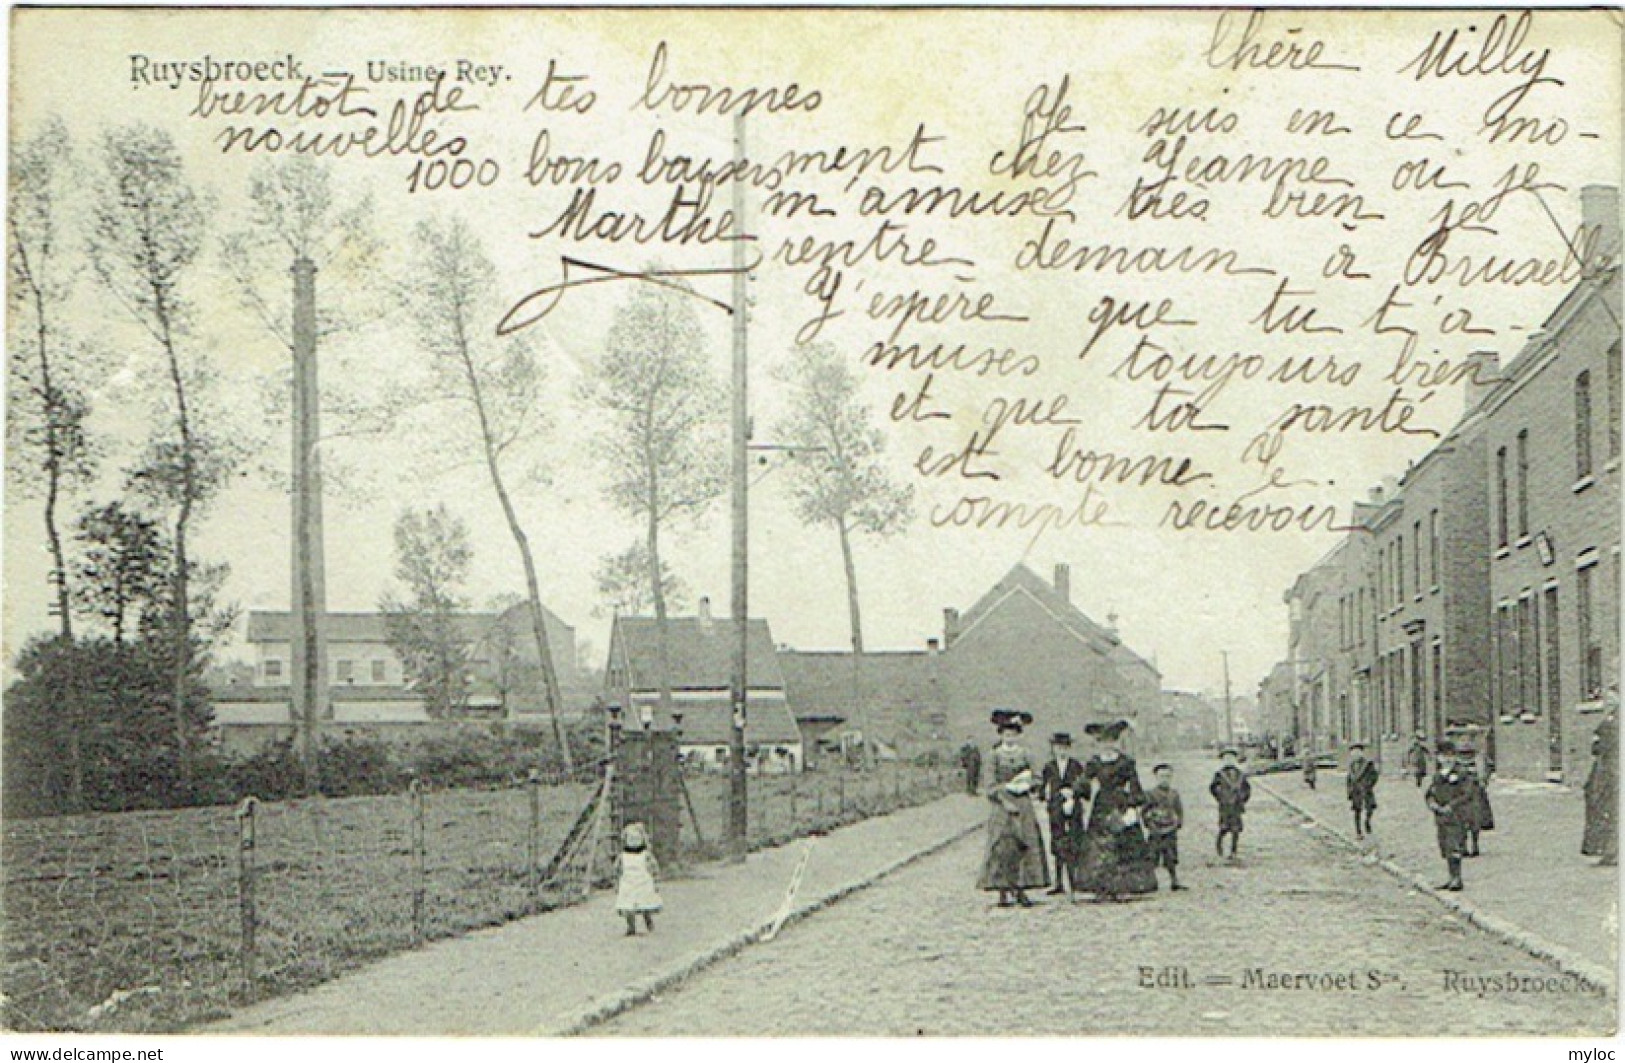 Ruysbroeck. — Usine Rey.
Chère Milly
Je suis en ce mo-
ment chez Jeanne ou je
m'amuse très bien je
rentre demain à Bruxell
J'espère que tu t'a-
muses toujours bien
et que ta santé
est bonne. Je
compte recevoir
bientôt de tes bonnes
nouvelles
1000 bons baisers
Marthe
Edit. — Maervoet Srs. Ruysbroeck.
delcampe.net
myloc